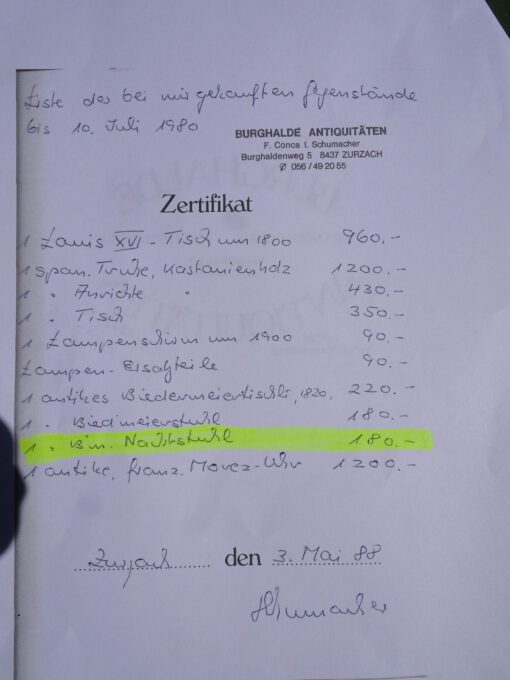 Liste der bei mir gekauften Gegenstände
bis 10. Juli 1980
BURGHALDE ANTIQUITÄTEN
F. Conca I. Schumacher
Burghaldenweg 5 8437 ZURZACH
✆ 056 / 49 20 55
Zertifikat
1 Louis XVI - Tisch um 1800 960.-
1 span. Truhe, Kastanienholz 1200.-
1 " Anrichte " 430.-
1 " Tisch 350.-
1 Lampenschirm um 1900 90.-
Lampen-Ersatzteile 90.-
1 antikes Biedermeiertischli, 1820, 220.-
1 " Biedmeierstuhl 180.-
1 " Nachtstuhl 180.-
1 antike, franz. Morez-Uhr 1200.-
Zurzach den 3. Mai 88
Schumacher